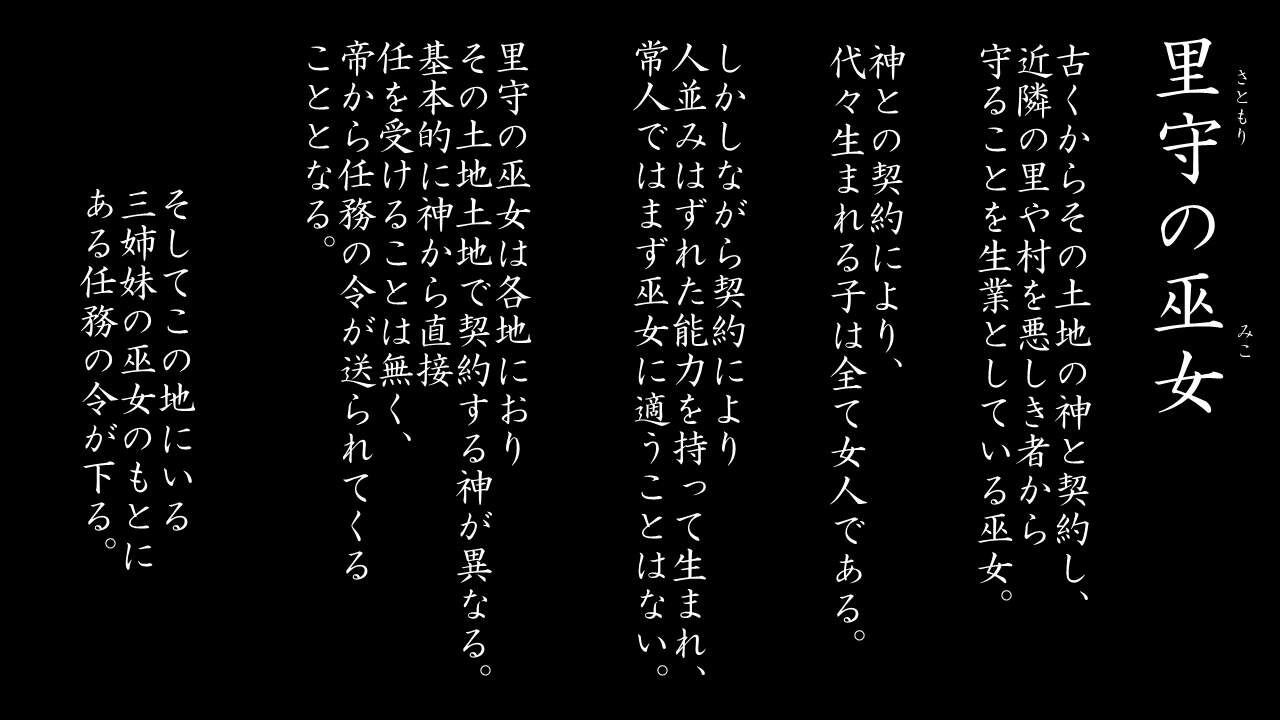 里守の巫女
さともり
みこ
古くからその土地の神と契約し、
近隣の里や村を悪しき者から
守ることを生業としている巫女。
神との契約により、
代々生まれる子は全て女人である。
しかしながら契約により
人並みはずれた能力を持って生まれ、
常人ではまず巫女に適うことはない。
里守の巫女は各地におり
その土地土地で契約する神が異なる。
基本的に神から直接
任を受けることは無く、
帝から任務の令が送られてくる
こととなる。
そしてこの地にいる
三姉妹の巫女のもとに
ある任務の令が下る。